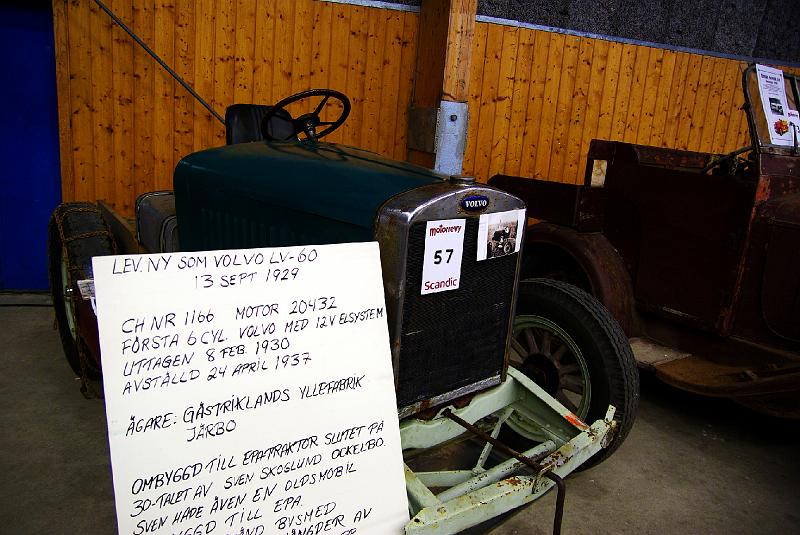 LEV. NY SOM VOLVO LV-60
13 SEPT 1929
CH NR 1166 MOTOR 20432
FÖRSTA 6 CYL. VOLVO MED 12V ELSYSTEM
UTTAGEN 8 FEB. 1930
AVSTÄLLD 24 APRIL 1937
ÄGARE: GÄSTRIKLANDS YLLEFABRIK
JÄRBO
OMBYGGD TILL EPATRAKTOR SLUTET PÅ
30-TALET AV SVEN SKOGLUND OCKELBO.
SVEN HADE ÄVEN EN OLDSMOBIL
BYGGD TILL EPA.
VOLVO
motorrevy
57
Scandic